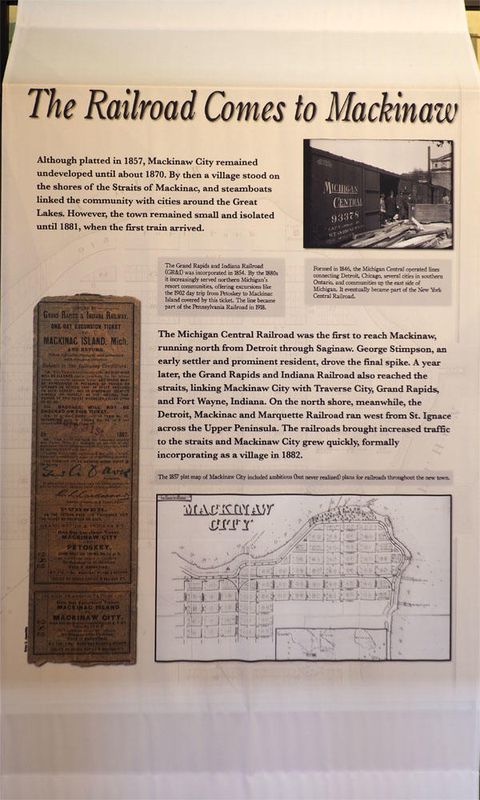 The Railroad Comes to Mackinaw
Although platted in 1857, Mackinaw City remained
undeveloped until about 1870. By then a village stood on
the shores of the Straits of Mackinac, and steamboats
linked the community with cities around the Great
Lakes. However, the town remained small and isolated
until 1881, when the first train arrived.
MICHIGAN
CENTRAL
93378
The Grand Rapids and Indiana Railroad
(GR&I) was incorporated in 1854. By the 1880s
it increasingly served northern Michigan's
resort communities, offering excursions like
the 1902 day trip from Petoskey to Mackinac
Island covered by this ticket. The line became
part of the Pennsylvania Railroad in 1918.
Formed in 1846, the Michigan Central operated lines
connecting Detroit, Chicago, several cities in southern
Ontario, and communities up the east side of
Michigan. It eventually became part of the New York
Central Railroad.
GRAND RAPIDS & INDIANA RAILWAY.
ONE DAY EXCURSION TICKET
MACKINAC ISLAND, Mich.
AND RETURN.
MACKINAW CITY
PETOSKEY.
MACKINAC ISLAND
MACKINAW CITY.
The Michigan Central Railroad was the first to reach Mackinaw,
running north from Detroit through Saginaw. George Stimpson, an
early settler and prominent resident, drove the final spike. A year
later, the Grand Rapids and Indiana Railroad also reached the
straits, linking Mackinaw City with Traverse City, Grand Rapids,
and Fort Wayne, Indiana. On the north shore, meanwhile, the
Detroit, Mackinac and Marquette Railroad ran west from St. Ignace
across the Upper Peninsula. The railroads brought increased traffic
to the straits and Mackinaw City grew quickly, formally
incorporating as a village in 1882.
The 1857 plat map of Mackinaw City included ambitious (but never realized) plans for railroads throughout the new town.
MACKINAW
CITY